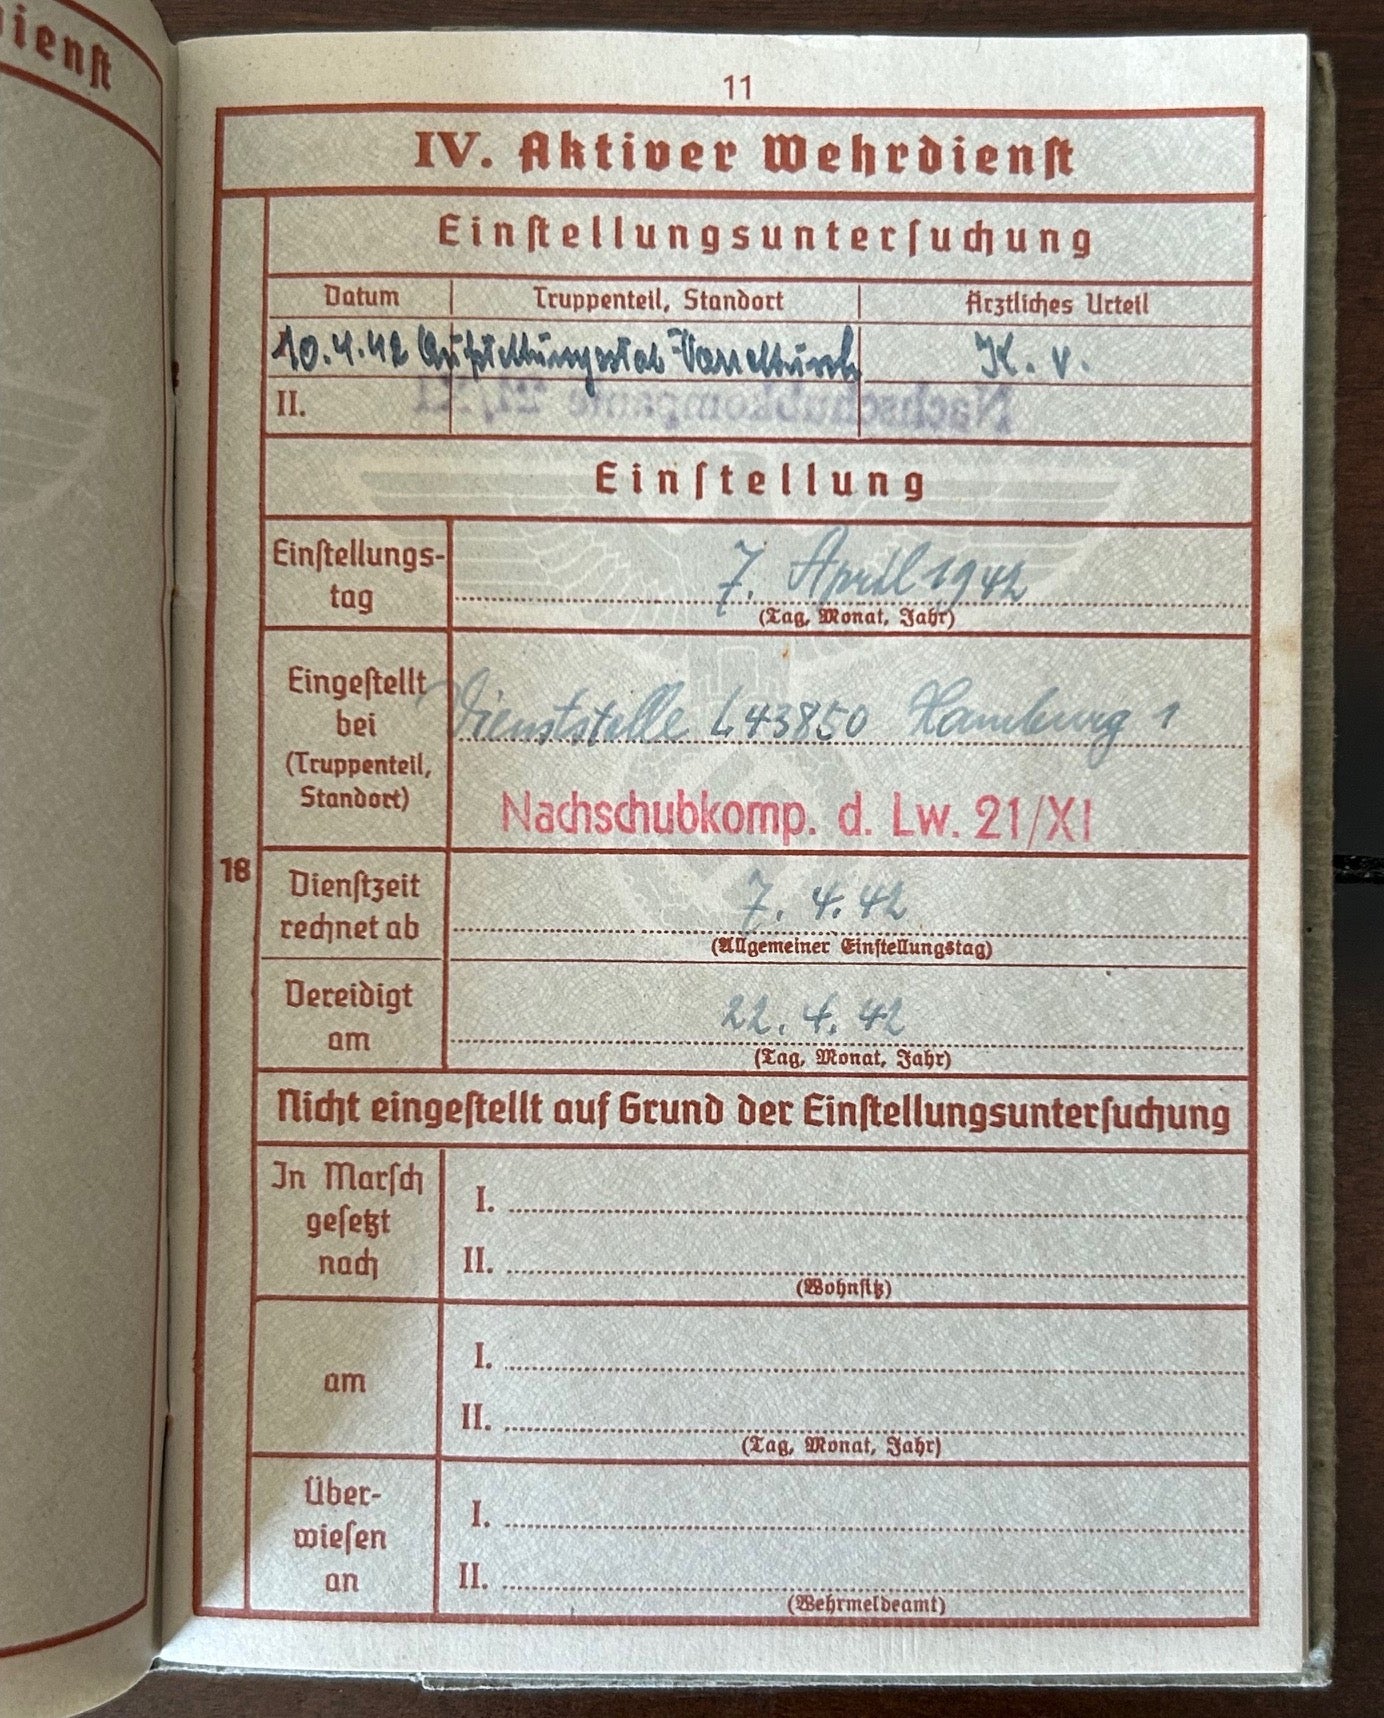 ienst
11
IV. Aktiver Wehrdienst
Einstellungsuntersuchung
Datum Truppenteil, Standort Ärztliches Urteil
10.4.42 Aufstellungsstab K. v.
II.
Nachschubkompanie 21/XI
Einstellung
Einstellungs-
tag
7. April 1942
(Tag, Monat, Jahr)
Eingestellt
bei
(Truppenteil,
Standort)
Dienststelle L43850 Hamburg 1
Nachschubkomp. d. Lw. 21/XI
18
Dienstzeit
rechnet ab
7. 4. 42
(Allgemeiner Einstellungstag)
Vereidigt
am
22. 4. 42
(Tag, Monat, Jahr)
Nicht eingestellt auf Grund der Einstellungsuntersuchung
In Marsch
gesetzt
nach
I.
II.
(Wohnsitz)
am
I.
II.
(Tag, Monat, Jahr)
Über-
wiesen
an
I.
II.
(Wehrmeldeamt)